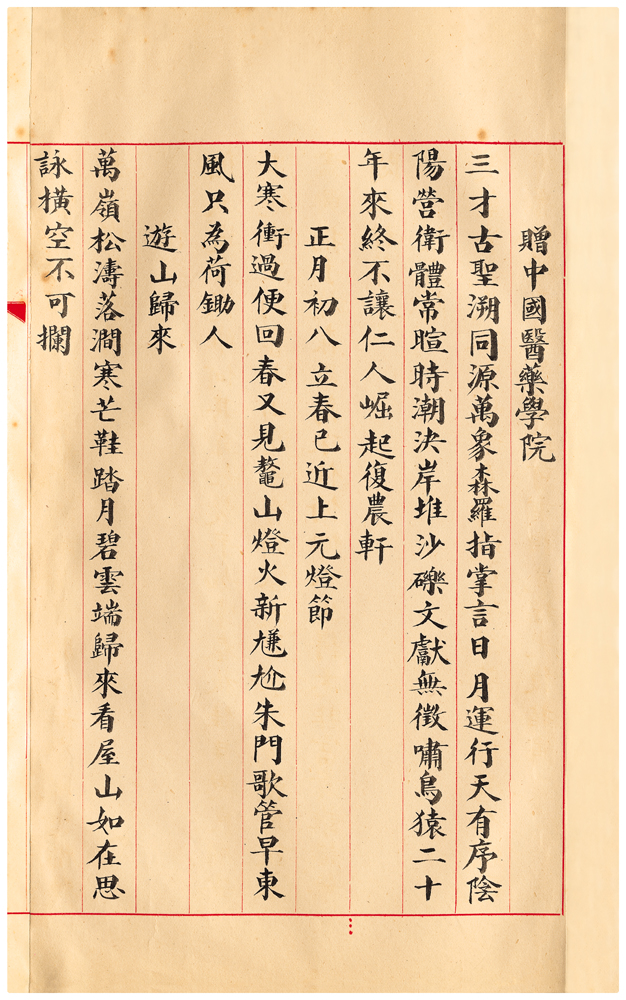 贈中國醫藥學院
三才古聖溯同源萬象森羅指掌言日月運行天有序陰
陽營衛體常暄時潮決岸堆沙礫文獻無徵嘯鳥猿二十
年來終不讓仁人崛起復農軒
正月初八立春已近上元燈節
大寒衝過便回春又見鼇山燈火新尷尬朱門歌管早東
風只為荷鋤人
遊山歸來
萬嶺松濤落澗寒芒鞋踏月碧雲端歸來看屋山如在思
詠橫空不可攔